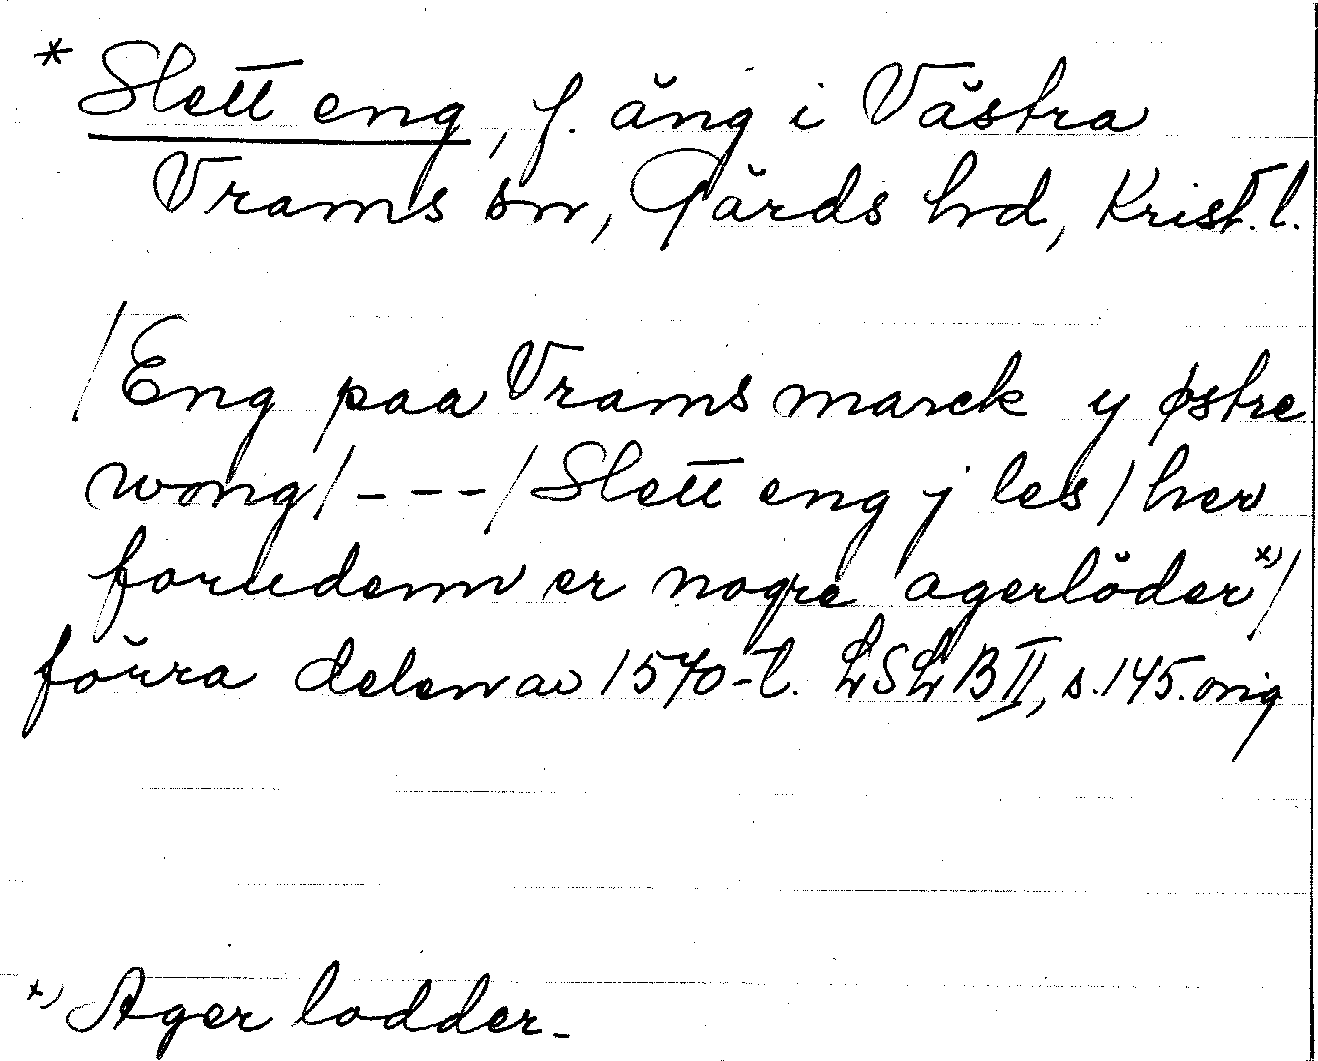 * Slett eng, f. äng i Västra
Vrams sn, Gärds hd, Krist. l.
/Eng paa Vrams marck y østre
wong/ - - - / Slett eng j les / her
forudenn er nogre agerlöder*)/
förra delen av 1570-t. LSLB II, s. 145. orig
*) Ager lodder.